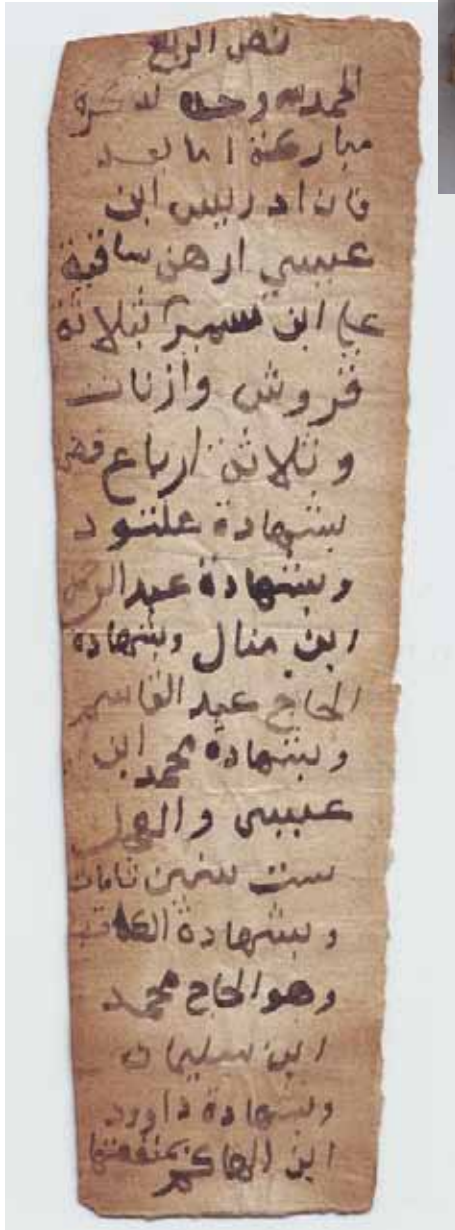 نص الربع
الحمد لله وحده لتذكرة
مباركة اما بعد
فان ادريس ابن
عيسي ارهن ساقية
علي ابن سمبر ثلاثة
قروش وازنات
وثلاثة ارباع فض
بشهادة علنود
وبشهادة عبد الرحمن
ابن منال وبشهادة
الحاج عبد القاسم
وبشهادة محمد ابن
عيسي والاجل
ست سنين تامات
وبشهادة الكاتب
وهو الحاج محمد
ابن سليمان
وبشهادة داوود
ابن الحاكم بمنفعتها